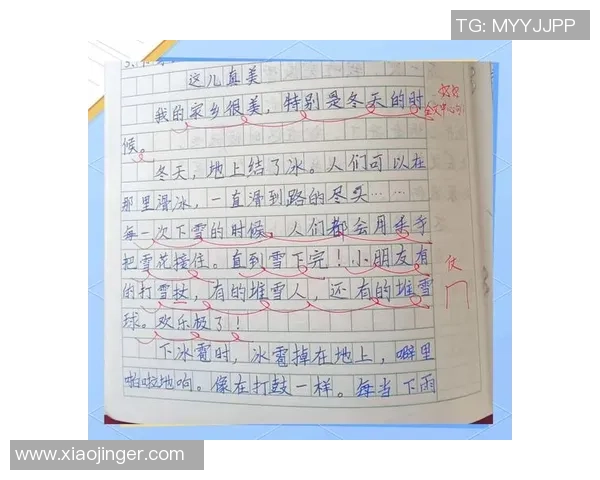 TG: MYYJJPP
这儿真美
我的家乡很美，特别是冬天的时
候。
冬天，地上结了冰。人们可以在
那里滑冰，一直滑到路的尽头……
每一次下雪的时候，人们都会用手
把雪花接住。直到雪下完！小朋友有
的打雪仗，有的堆雪人，还有的堆雪
球。欢乐极了！
下冰雹时，冰雹掉在地上，噼里
啪啦地响。像在打鼓一样。每当下雨
仗
www.xiaojinger.com